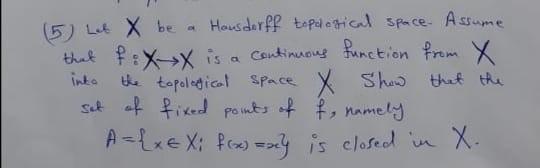 (5) Let X be a Hausdorff topological space. Assume
that f: X→X is a continuous function from X
into the topological space X Show that the
set of fixed points of f, namely
A = {x ∈ X; f(x) = x} is closed in X.